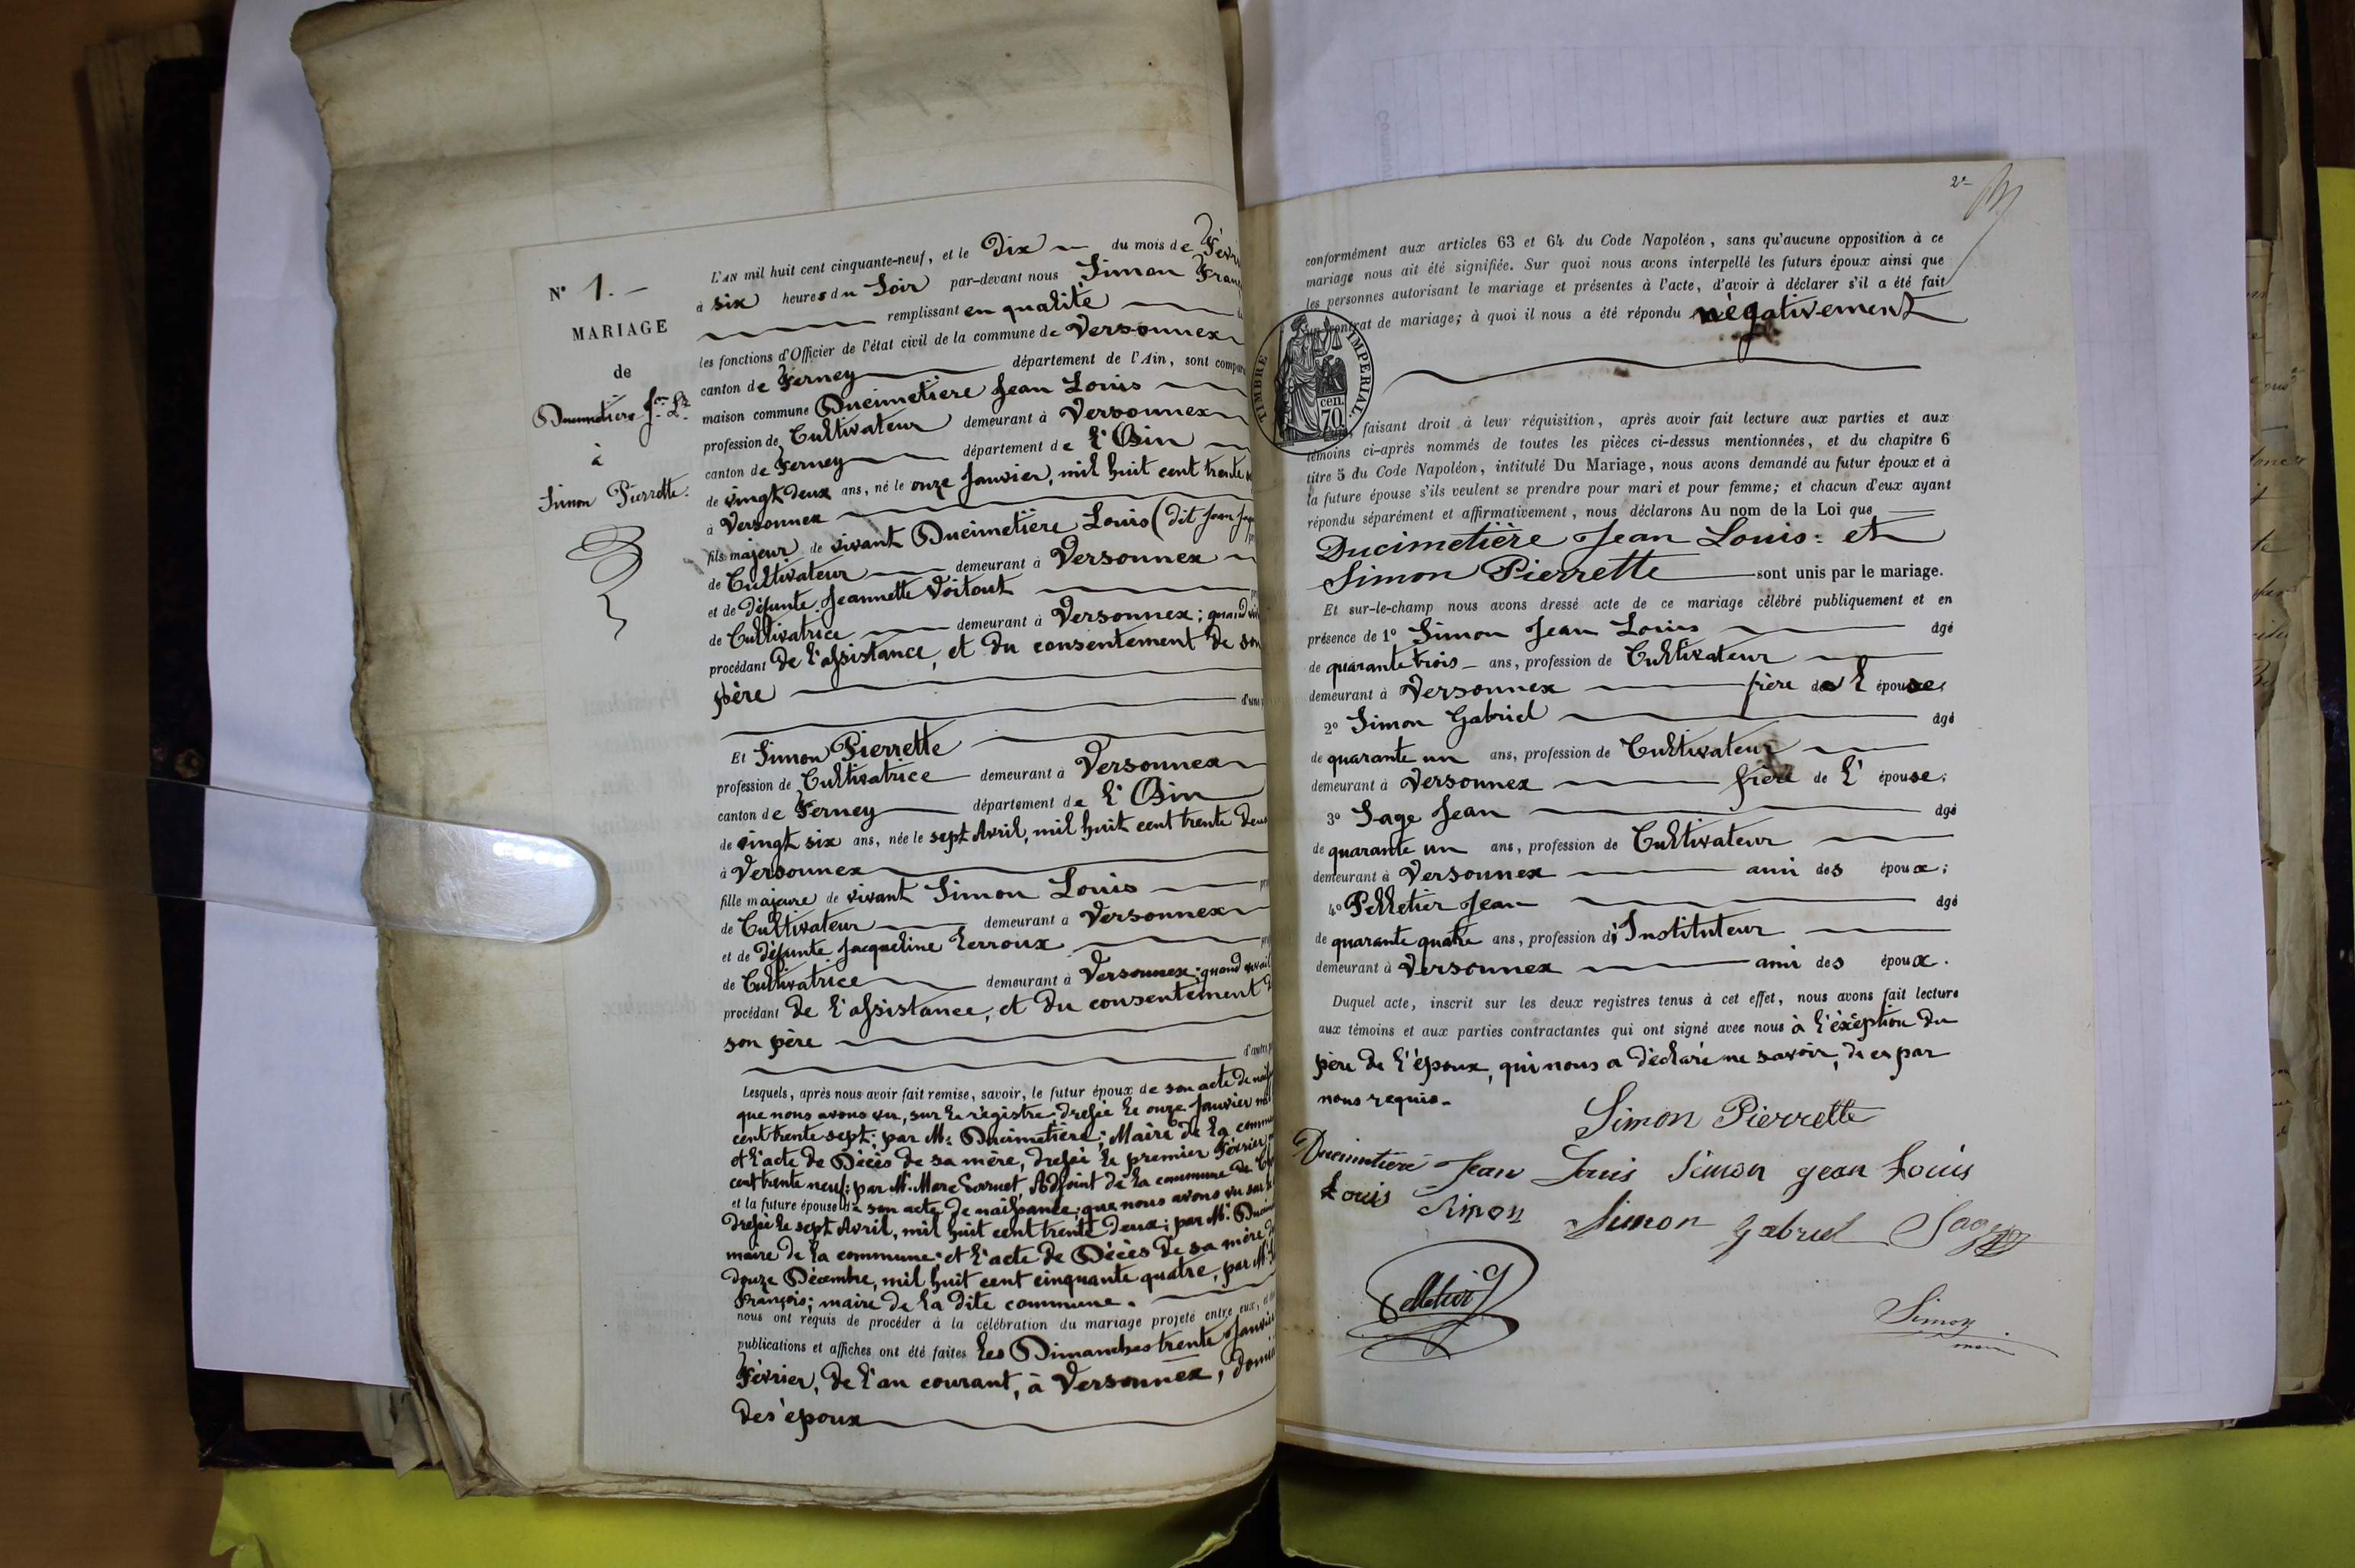 N° 1.
MARIAGE
de
Ducimetière Jn Ls
à
Simon Pierrette.
L'AN mil huit cent cinquante-neuf, et le Dix du mois de
à six heures du Soir par-devant nous Simon
remplissant en qualité
les fonctions d'Officier de l'état civil de la commune de Versonnex
canton de Ferney département de l'Ain, sont
maison commune Ducimetière Jean Louis
profession de Cultivateur demeurant à Versonnex
canton de Ferney département de l'Ain
de vingt deux ans, né le onze Janvier, mil huit cent trente
à Versonnex
fils majeur de vivant Ducimetière Louis (dit Jean
de Cultivateur demeurant à Versonnex
et de défunte Jeannette Voitout
de Cultivatrice demeurant à Versonnex; quand
procédant De l'assistance, et du consentement De son
père
Et Simon Pierrette
profession de Cultivatrice demeurant à Versonnex
canton de Ferney département de l'Ain
de vingt six ans, née le sept Avril, mil huit cent trente Deux
à Versonnex
fille majeure de vivant Simon Louis
de Cultivateur demeurant à Versonnex
et de défunte Jacqueline Lerroux
de Cultivatrice demeurant à Versonnex; quand
procédant De l'assistance, et du consentement
son père
Lesquels, après nous avoir fait remise, savoir, le futur époux de son acte de
que nous avons vu, sur le régistre dressé le onze Janvier
cent trente sept; par Mr Ducimetière; Maire de la
et l'acte de Décès de sa mère, dressé le premier Février
cent trente neuf; par Mr Marc Adjoint de la commune de
et la future épouse de son acte de naissance; que nous avons vu sur
dressé le sept Avril, mil huit cent trente deux; par Mr
maire de la commune; et l'acte de Décès de sa mère
douze Décembre, mil huit cent cinquante quatre, par Mr
François; maire de la dite commune.
nous ont requis de procéder à la célébration du mariage projeté entre eux,
publications et affiches ont été faites les Dimanches trente
Février, De l'an courant, à Versonnex,
des époux
2e
conformément aux articles 63 et 64 du Code Napoléon, sans qu'aucune opposition à ce
mariage nous ait été signifiée. Sur quoi nous avons interpellé les futurs époux ainsi que
les personnes autorisant le mariage et présentes à l'acte, d'avoir à déclarer s'il a été fait
un contrat de mariage; à quoi il nous a été répondu négativement
TIMBRE IMPÉRIAL.
70 cen.
faisant droit à leur réquisition, après avoir fait lecture aux parties et aux
témoins ci-après nommés de toutes les pièces ci-dessus mentionnées, et du chapitre 6
titre 5 du Code Napoléon, intitulé Du Mariage, nous avons demandé au futur époux et à
la future épouse s'ils veulent se prendre pour mari et pour femme; et chacun d'eux ayant
répondu séparément et affirmativement, nous déclarons Au nom de la Loi que
Ducimetière Jean Louis: et
Simon Pierrette sont unis par le mariage.
Et sur-le-champ nous avons dressé acte de ce mariage célébré publiquement et en
présence de 1° Simon Jean Louis âgé
de quarante trois ans, profession de Cultivateur
demeurant à Versonnex frère de l'épouse;
2° Simon Gabriel âgé
de quarante un ans, profession de Cultivateur
demeurant à Versonnex frère de l'épouse;
3° Sage Jean âgé
de quarante un ans, profession de Cultivateur
demeurant à Versonnex ami des époux;
4° Pelletier Jean âgé
de quarante quatre ans, profession d'Instituteur
demeurant à Versonnex ami des époux.
Duquel acte, inscrit sur les deux registres tenus à cet effet, nous avons fait lecture
aux témoins et aux parties contractantes qui ont signé avec nous à l'éxéption du
père de l'époux, qui nous a déclaré ne savoir, de ce par
nous requis.
Simon Pierrette
Ducimetière Jean Louis Simon jean Louis
Louis Simon Simon gabriel Sage
Pelletier
Simon
maire